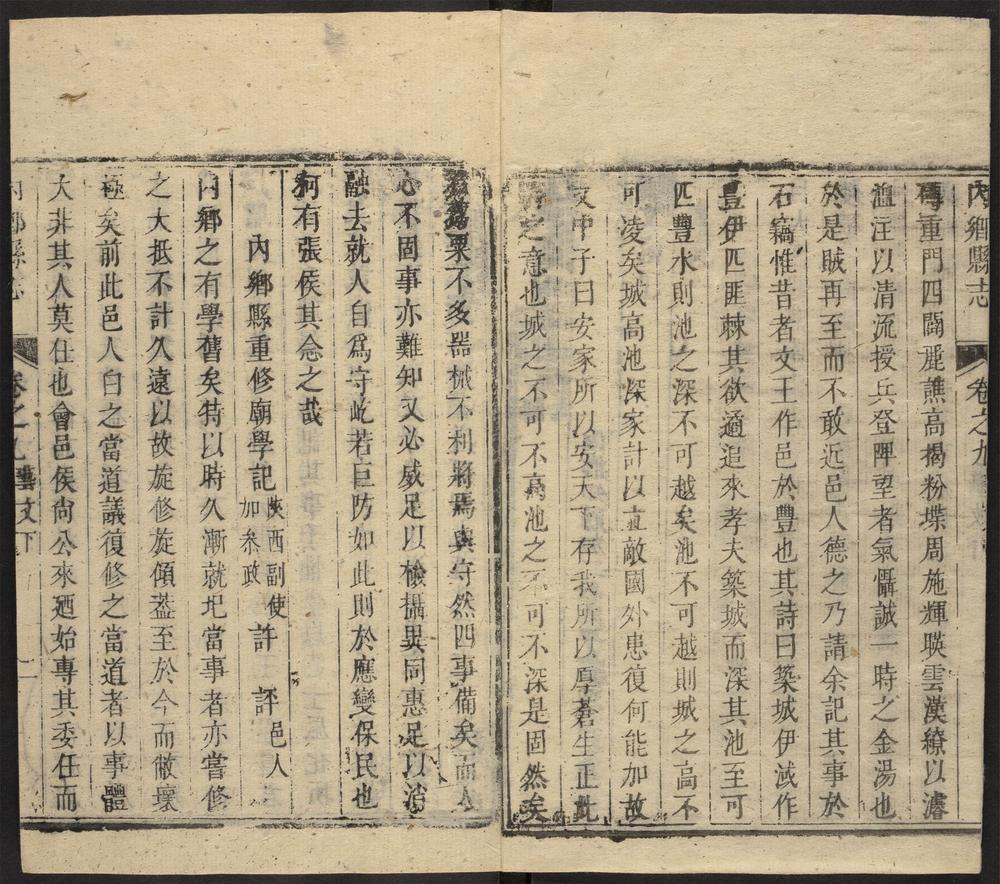 內鄉縣志 卷之九
磚重門四闢麗譙高揭粉堞周施輝暎雲漢繚以濬
洫注以清流授兵登陴望者氣懾誠一時之金湯也
於是賊再至而不敢近邑人德之乃請余記其事於
石竊惟昔者文王作邑於豐也其詩曰築城伊淢作
豐伊匹匪棘其欲遹追來孝夫築城而深其池至可
匹豐水則池之深不可越矣池不可越則城之高不
可凌矣城高池深家計以寘敵國外患復何能加故
文中子曰安家所以安天下存我所以厚蒼生正此
之意也城之不可不高池之不可不深是固然矣
粟不多器械不利將焉與守然四事備矣而人
心不固事亦難知又必威足以檢攝異同惠足以消
融去就人自爲守屹若巨防如此則於應變保民也
何有張侯其念之哉
內鄉縣重修廟學記 陜西副使加叅政 許 評 邑人
內鄉之有學舊矣特以時久漸就圯當事者亦嘗修
之大抵不計久遠以故旋修旋傾葢至於今而敝壞
極矣前此邑人白之當道議復修之當道者以事體
大非其人莫仕也會邑侯尙公來廼始專其委任而
內鄉縣志 卷之九 藝文下